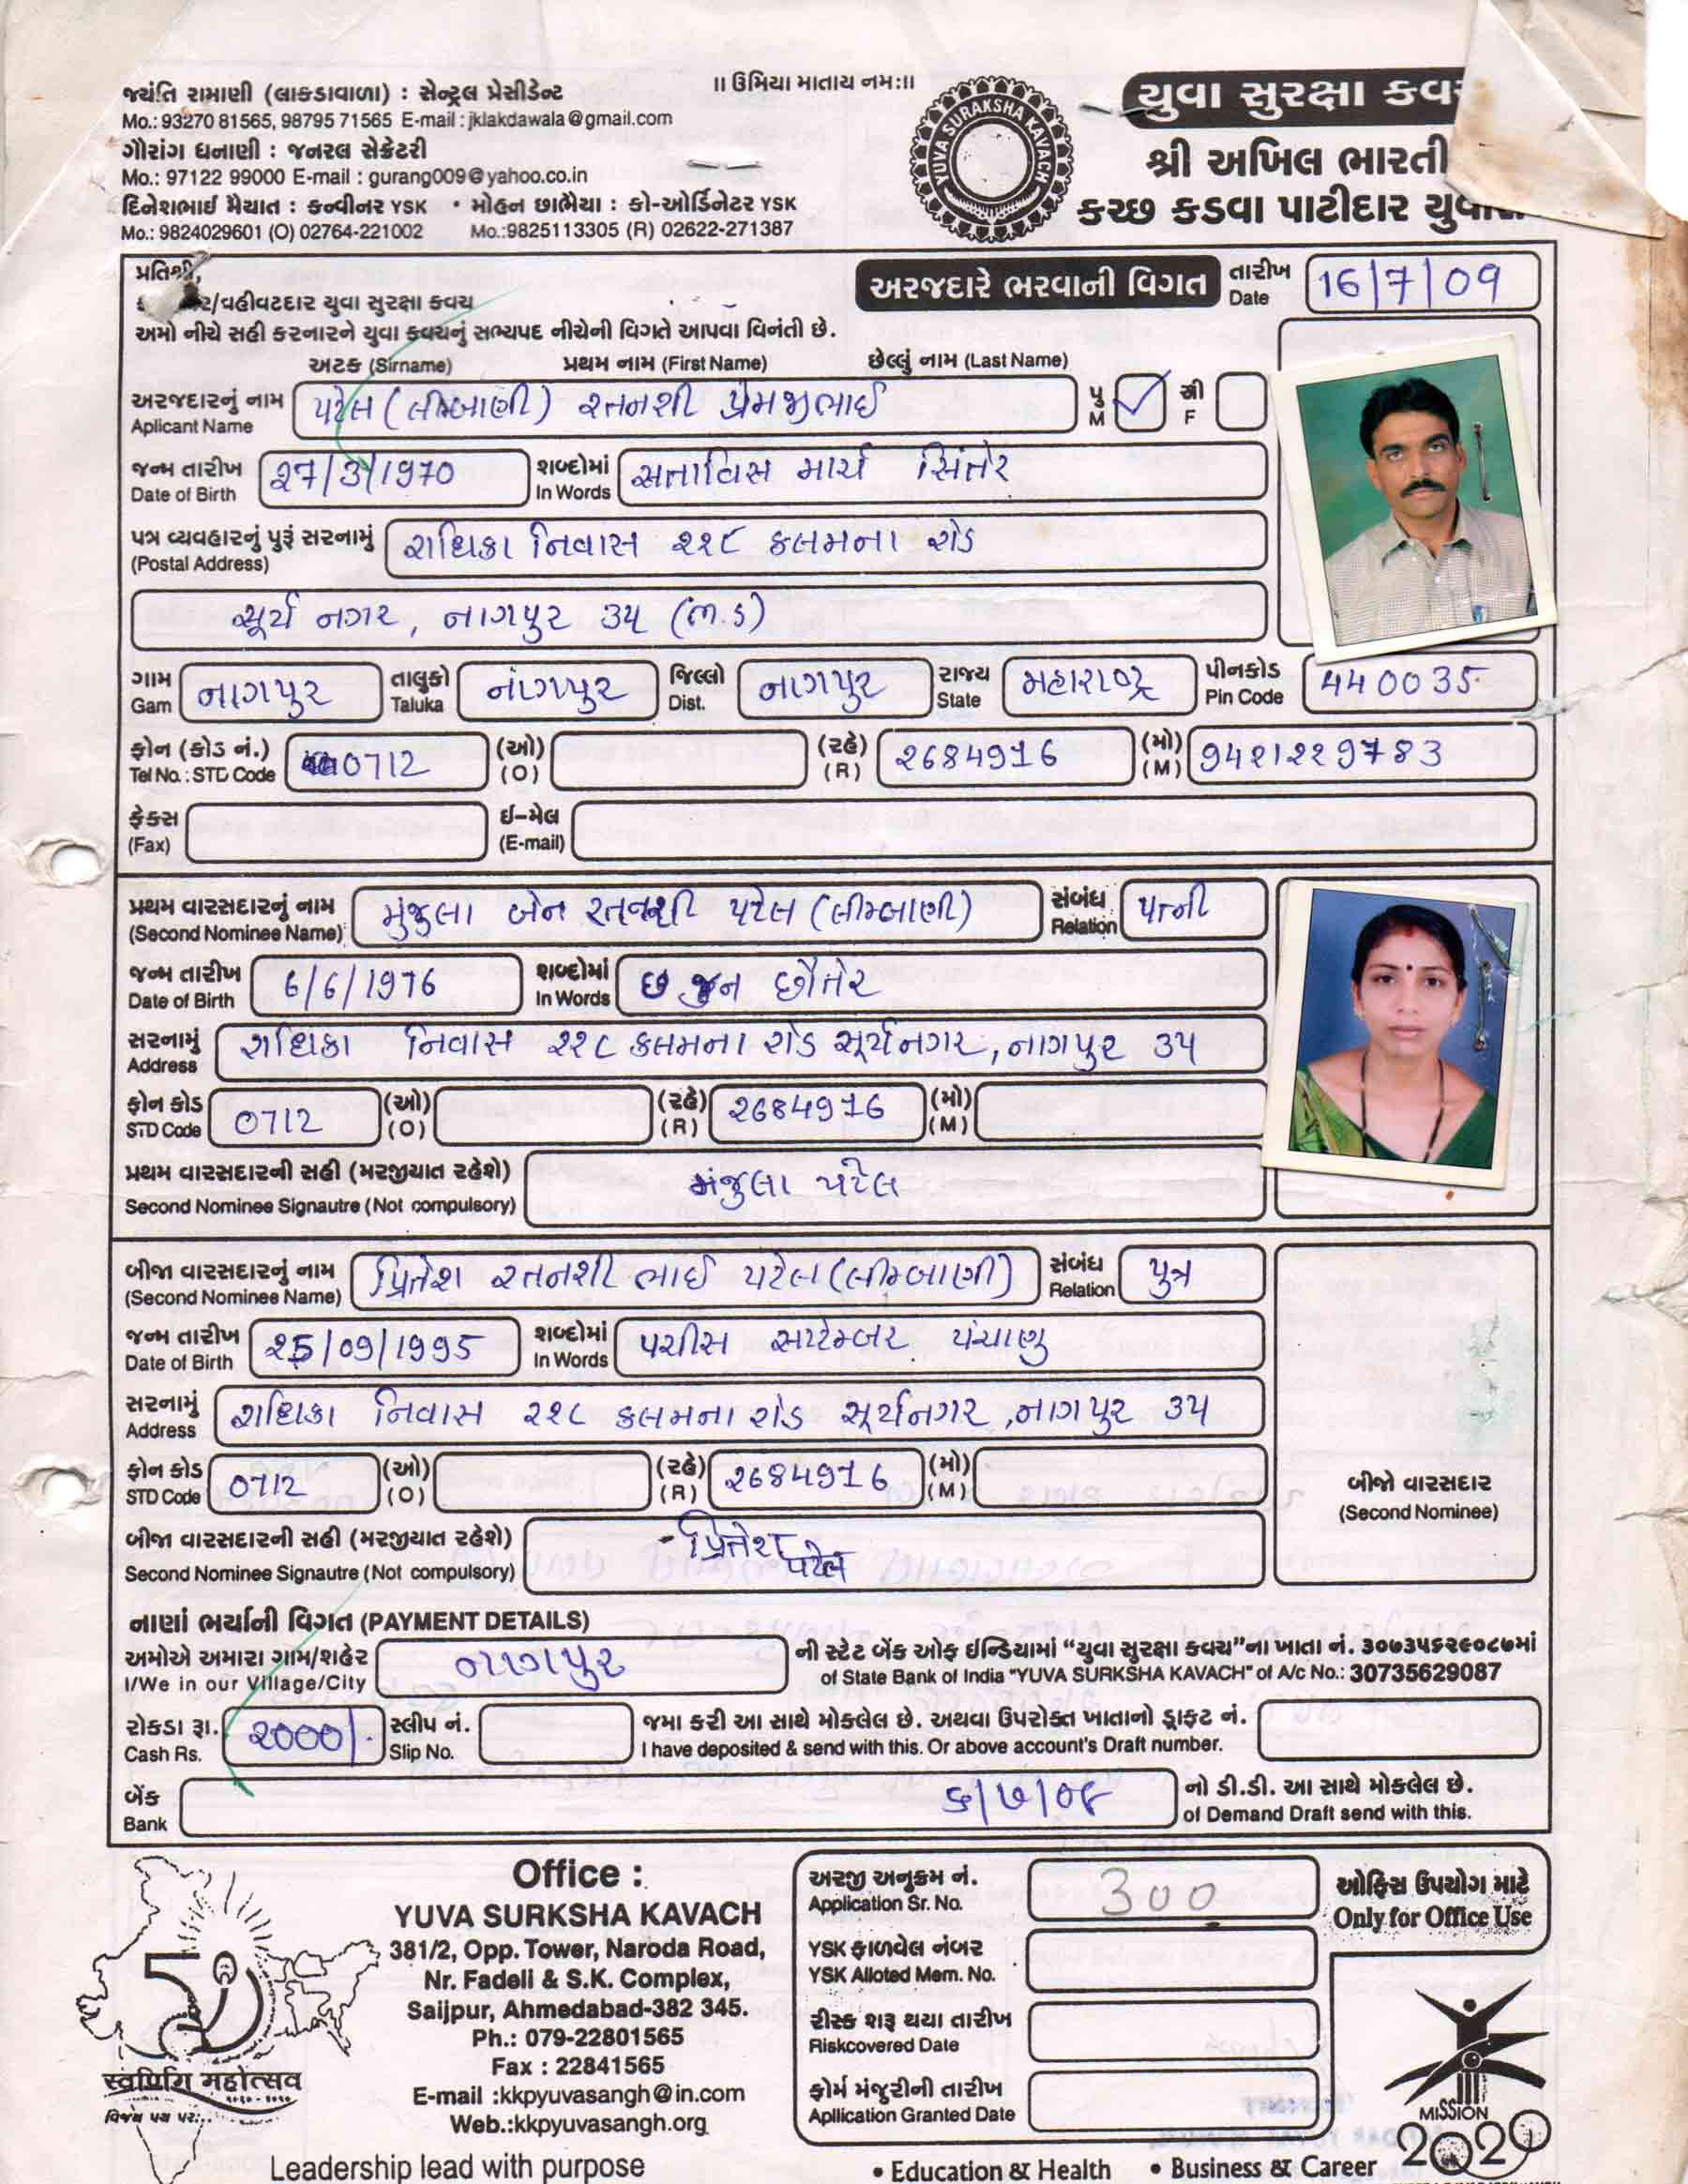 જયંતિ રામાણી (લાકડાવાળા) : સેન્ટ્રલ પ્રેસીડેન્ટ
Mo.: 93270 81565, 98795 71565 E-mail : jklakdawala@gmail.com
ગૌરાંગ ધનાણી : જનરલ સેક્રેટરી
Mo.: 97122 99000 E-mail : gurang009@yahoo.co.in
દિનેશભાઈ મૈયાત : કન્વીનર YSK • મોહન છાભૈયા : કો-ઓર્ડિનેટર YSK
Mo.: 9824029601 (O) 02764-221002 Mo.:9825113305 (R) 02622-271387
।। ઉમિયા માતાય નમઃ।।
YUVA SURAKSHA KAVACH
યુવા સુરક્ષા કવ
શ્રી અખિલ ભારતી
કચ્છ કડવા પાટીદાર
પ્રતિશ્રી,
/વહીવટદાર યુવા સુરક્ષા કવચ
અરજદારે ભરવાની વિગત તારીખ Date 16/7/09
અમો નીચે સહી કરનારને યુવા કવચનું સભ્યપદ નીચેની વિગતે આપવા વિનંતી છે.
અટક (Sirname) પ્રથમ નામ (First Name) છેલ્લું નામ (Last Name)
અરજદારનું નામ Aplicant Name પટેલ (લીમ્બાણી) રતનશી પ્રેમજીભાઈ પુ M ✓ સ્ત્રી F
જન્મ તારીખ Date of Birth ૨7/3/1970 શબ્દોમાં In Words સતાવિસ માર્ચ સિંતેર
પત્ર વ્યવહારનું પુરૂં સરનામું (Postal Address) રાધિકા નિવાસ ૨૨૮ કલમના રોડ
સૂર્ય નગર, નાગપુર ૩૫
ગામ Gam નાગપુર તાલુકો Taluka નાગપુર જિલ્લો Dist. નાગપુર રાજ્ય State મહારાષ્ટ્ર પીનકોડ Pin Code 440035
ફોન (કોડ નં.) Tel No.: STD Code 0712 (ઓ) (O) (રહે) (R) ૨684916 (મો) (M) 94૨1૨૨9783
ફેક્સ (Fax) ઈ-મેલ (E-mail)
પ્રથમ વારસદારનું નામ (Second Nominee Name) મુંજુલા બેન રતનશી પટેલ (લીમ્બાણી) સંબંધ Relation પત્ની
જન્મ તારીખ Date of Birth 6/6/1976 શબ્દોમાં In Words છ જુન છૌતેર
સરનામું Address રાધિકા નિવાસ ૨૨૮ કલમના રોડ સૂર્યનગર, નાગપુર ૩૫
ફોન કોડ STD Code 0712 (ઓ) (O) (રહે) (R) ૨684916 (મો) (M)
પ્રથમ વારસદારની સહી (મરજીયાત રહેશે)
Second Nominee Signautre (Not compulsory) મંજુલા પટેલ
બીજા વારસદારનું નામ (Second Nominee Name) પ્રિતેશ રતનશી ભાઈ પટેલ (લીમ્બાણી) સંબંધ Relation પુત્ર
જન્મ તારીખ Date of Birth ૨5/09/1995 શબ્દોમાં In Words પચીસ સપ્ટેમ્બર પંચાણુ
સરનામું Address રાધિકા નિવાસ ૨૨૮ કલમના રોડ સૂર્યનગર, નાગપુર ૩૫
ફોન કોડ STD Code 0712 (ઓ) (O) (રહે) (R) ૨684916 (મો) (M)
બીજો વારસદાર
(Second Nominee)
બીજા વારસદારની સહી (મરજીયાત રહેશે)
Second Nominee Signautre (Not compulsory) પ્રિતેશ પટેલ
નાણાં ભર્યાની વિગત (PAYMENT DETAILS)
અમોએ અમારા ગામ/શહેર નાગપુર ની સ્ટેટ બેંક ઓફ ઈન્ડિયામાં “યુવા સુરક્ષા કવચ”ના ખાતા નં. ૩૦૭૩૫૬૨૯૦૮૭માં
I/We in our Village/City of State Bank of India "YUVA SURKSHA KAVACH" of A/c No.: 30735629087
રોકડા રૂા. Cash Rs. ૨000/- સ્લીપ નં. Slip No. જમા કરી આ સાથે મોકલેલ છે. અથવા ઉપરોક્ત ખાતાનો ડ્રાફ્ટ નં.
I have deposited & send with this. Or above account's Draft number.
બેંક Bank ૬/૭/૦૯ નો ડી.ડી. આ સાથે મોકલેલ છે.
of Demand Draft send with this.
50
स्वर्णिम महोत्सव
Office :
YUVA SURKSHA KAVACH
381/2, Opp. Tower, Naroda Road,
Nr. Fadeli & S.K. Complex,
Saijpur, Ahmedabad-382 345.
Ph.: 079-22801565
Fax : 22841565
E-mail :kkpyuvasangh@in.com
Web.:kkpyuvasangh.org
Leadership lead with purpose
અરજી અનુક્રમ નં. Application Sr. No. 300
ઓફિસ ઉપયોગ માટે
Only for Office Use
YSK ફાળવેલ નંબર
YSK Alloted Mem. No.
રીસ્ક શરૂ થયા તારીખ
Riskcovered Date
ફોર્મ મંજુરીની તારીખ
Apllication Granted Date
MISSION
2020
• Education & Health • Business & Career